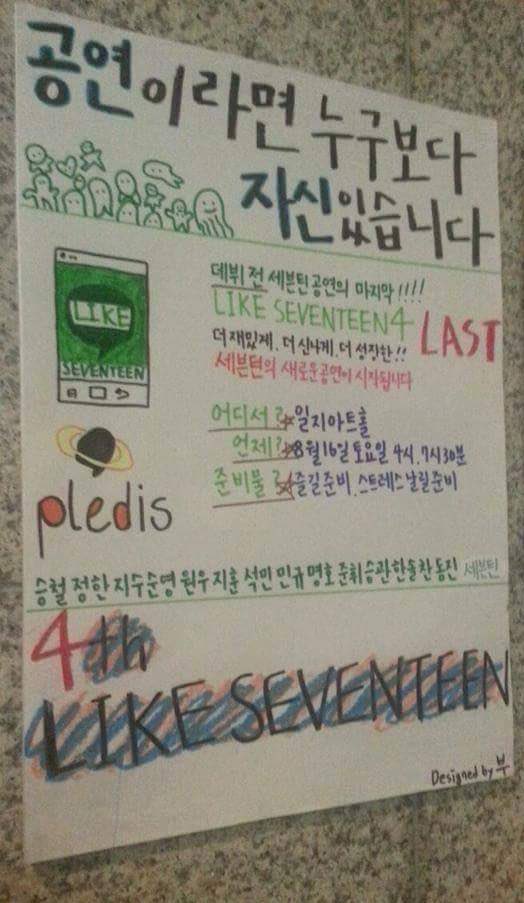 공연이라면 누구보다
자신있습니다
LIKE
SEVENTEEN
데뷔 전 세븐틴 공연의 마지막!!!!
LIKE SEVENTEEN 4 LAST
더 재밌게, 더 신나게, 더 성장한!!
세븐틴의 새로운공연이 시작됩니다
어디서? 일지아트홀
언제? 8월 16일 토요일 4시, 7시 30분
준비물? 즐길준비, 스트레스 날릴준비
pledis
승철 정한 지수 순영 원우 지훈 석민 민규 명호 준휘 승관 한솔 찬 동진 세븐틴
4th
LIKE SEVENTEEN
Designed by 부